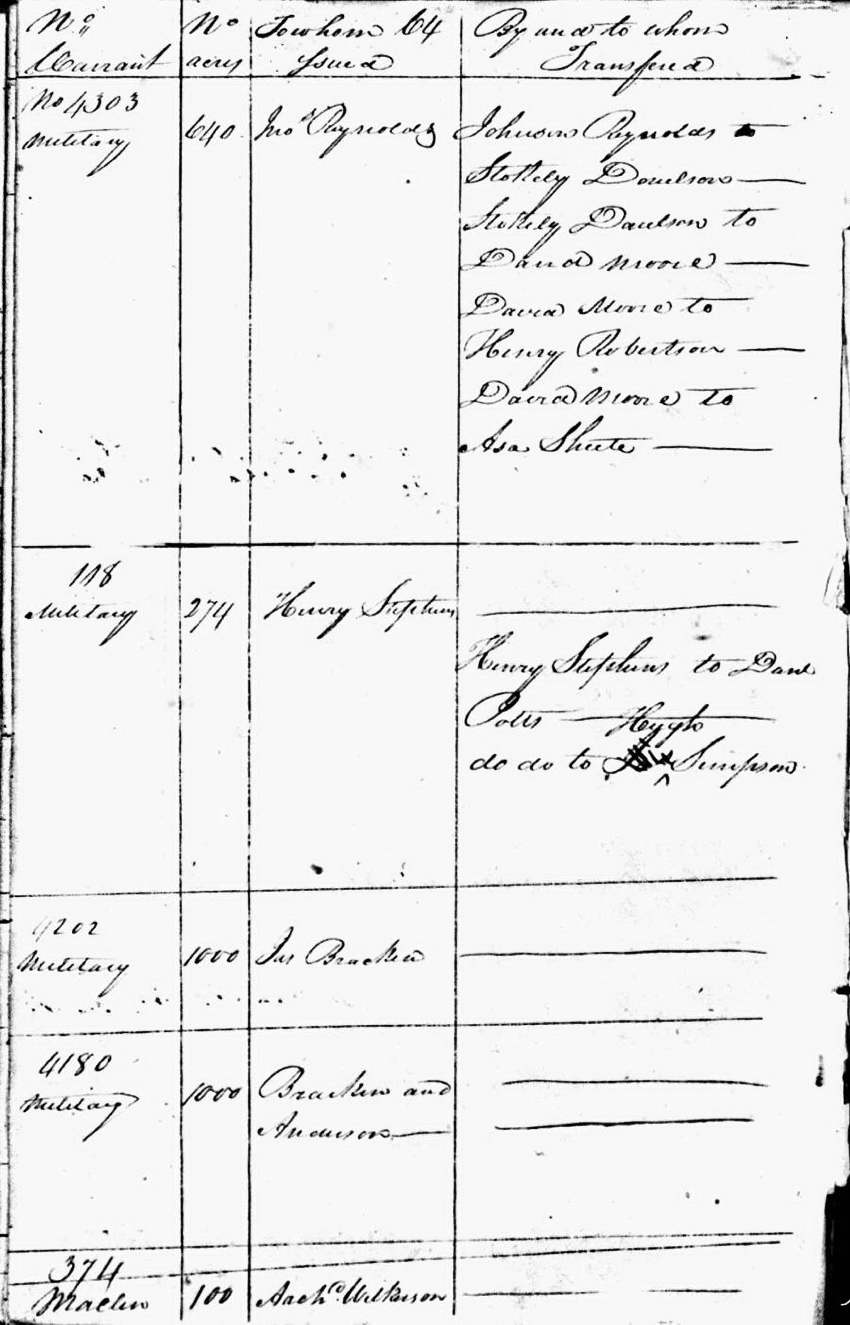 No. No Towhom 64 By and to whom
Warrant acres Issued Transfered
No 4303
Military 640 Jno. Reynolds Johnson Reynolds to
Stokely Donelson —
Stokely Donelson to
David Moore —
David Moore to
Henry Robertson —
David Moore to
Asa Shute —
118
Military 274 Henry Stephens —
Henry Stephens to Danl
Potts — Hugh
do do to Simpson
4202
Military 1000 Jas Bracken —
4180
Military 1000 Bracken and —
Anderson — —
374
Maclin 100 Archd. Wilkerson —